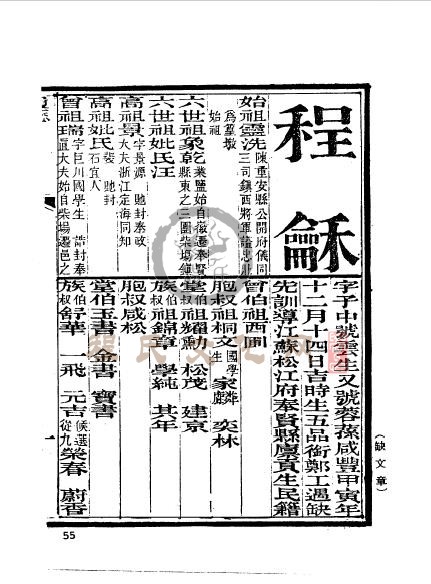 程龢
字子中號雲生又號蓉蓀咸豐甲寅年
十二月十四日吉時生五品銜鄭工遇缺
先訓導江蘇松江府奉賢縣廩貢生民籍
始祖靈洗 陳重安縣公開府儀同三司鎮西將軍諡忠壯
為篁墩始祖
六世祖象乾 業鹽始自徽遷奉賢縣東之三團柴場鎮
六世祖妣氏汪
高祖景 字景源 馳封奉政大夫浙江定海同知
高祖妣氏 裴 馳封石 宜人
曾祖瑞 字巨川國學生 誥封奉直大夫始自柴場遷邑之
曾伯祖西圃
胞叔祖桐文 國學生 家麟 奕林
堂伯叔祖耀勳 松茂 建京
族伯叔祖錦章 學純 其年
胞叔咸松
堂伯玉書 金書 寶書
族伯叔舒華 一飛 元吉 候選從九 榮春 蔚香
一
(缺文章)
55